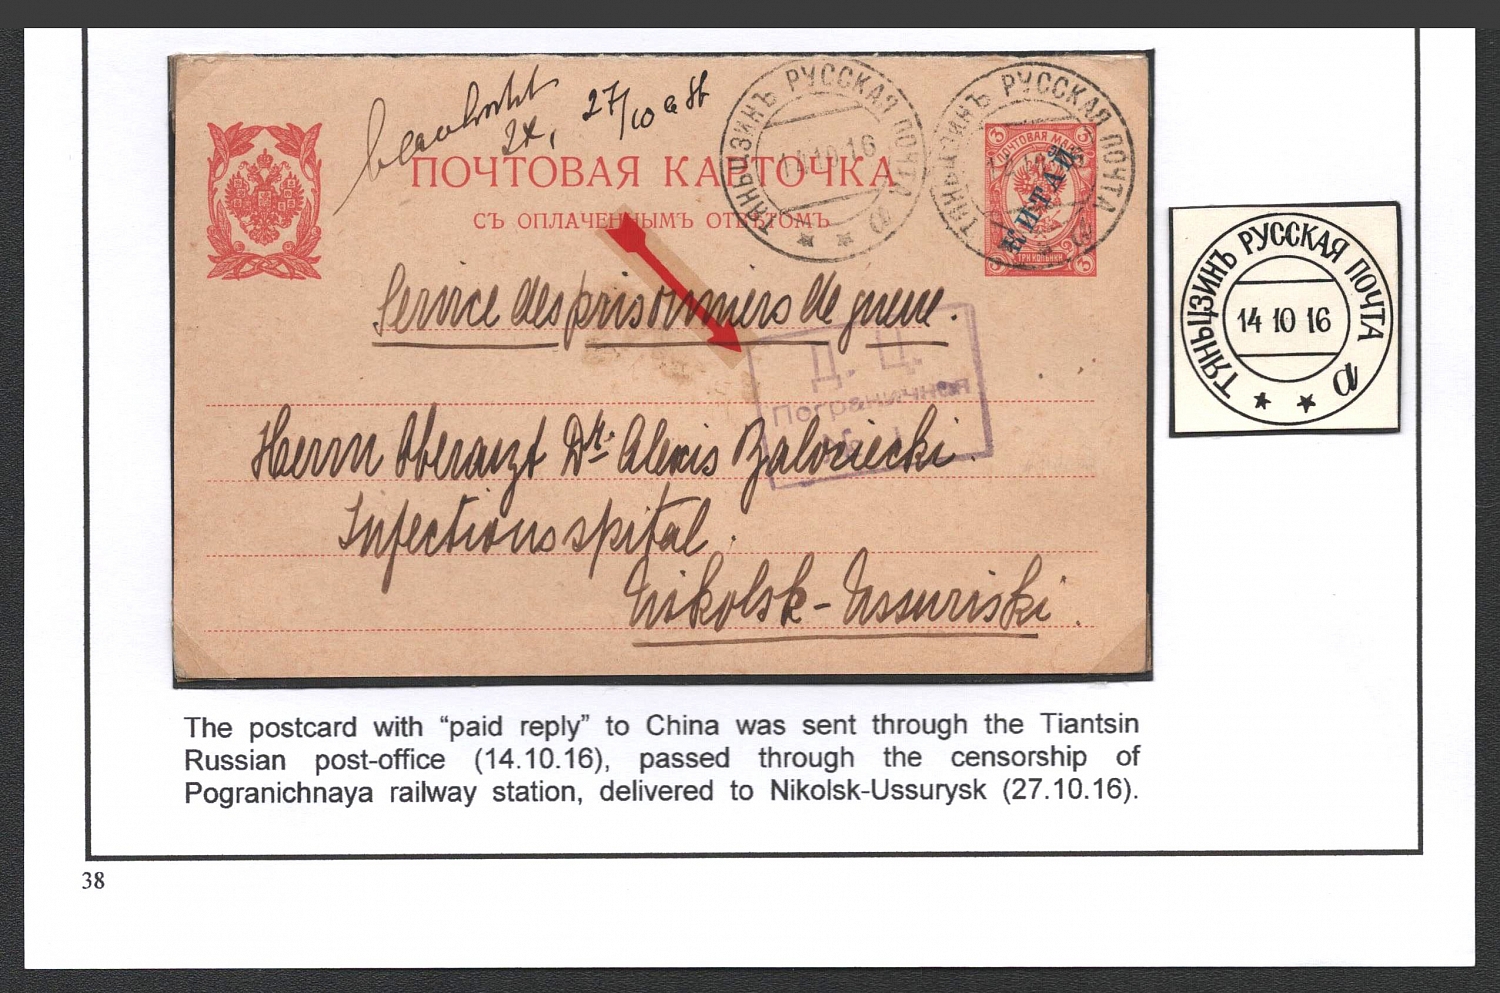 27/10
ПОЧТОВАЯ КАРТОЧКА
СЪ ОПЛАЧЕННЫМЪ ОТВѢТОМЪ
ТЯНЬЦЗИНЪ РУССКАЯ ПОЧТА
14 10 16
а
ТЯНЬЦЗИНЪ РУССКАЯ ПОЧТА
а
3 ПОЧТОВАЯ МАРКА 3
КИТАЙ
3 ТРИ КОПѢЙКИ 3
Service des prisonniers de guerre.
Д. Ц.
Пограничная
Herrn Oberarzt Dr. Alexis Zalociecki.
Infectionsspital.
Nikolsk-Ussuriski.
ТЯНЬЦЗИНЪ РУССКАЯ ПОЧТА
14 10 16
а
The postcard with “paid reply” to China was sent through the Tiantsin
Russian post-office (14.10.16), passed through the censorship of
Pogranichnaya railway station, delivered to Nikolsk-Ussurysk (27.10.16).
38